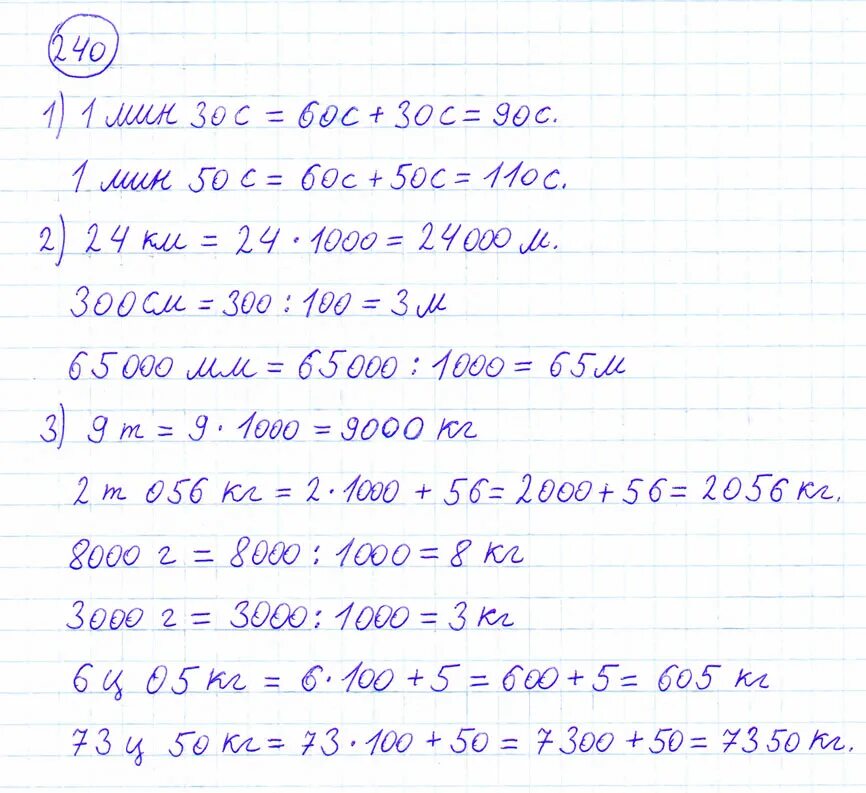 240
1) 1 мин 30 с = 60с + 30с = 90с.
1 мин 50 с = 60с + 50с = 110с.
2) 24 км = 24 · 1000 = 24000 м.
300см = 300 : 100 = 3 м
65000 мм = 65000 : 1000 = 65м
3) 9 т = 9 · 1000 = 9000 кг
2 т 056 кг = 2 · 1000 + 56 = 2000 + 56 = 2056 кг.
8000 г = 8000 : 1000 = 8 кг
3000 г = 3000 : 1000 = 3 кг
6 ц 05 кг = 6 · 100 + 5 = 600 + 5 = 605 кг
73 ц 50 кг = 73 · 100 + 50 = 7300 + 50 = 7350 кг.